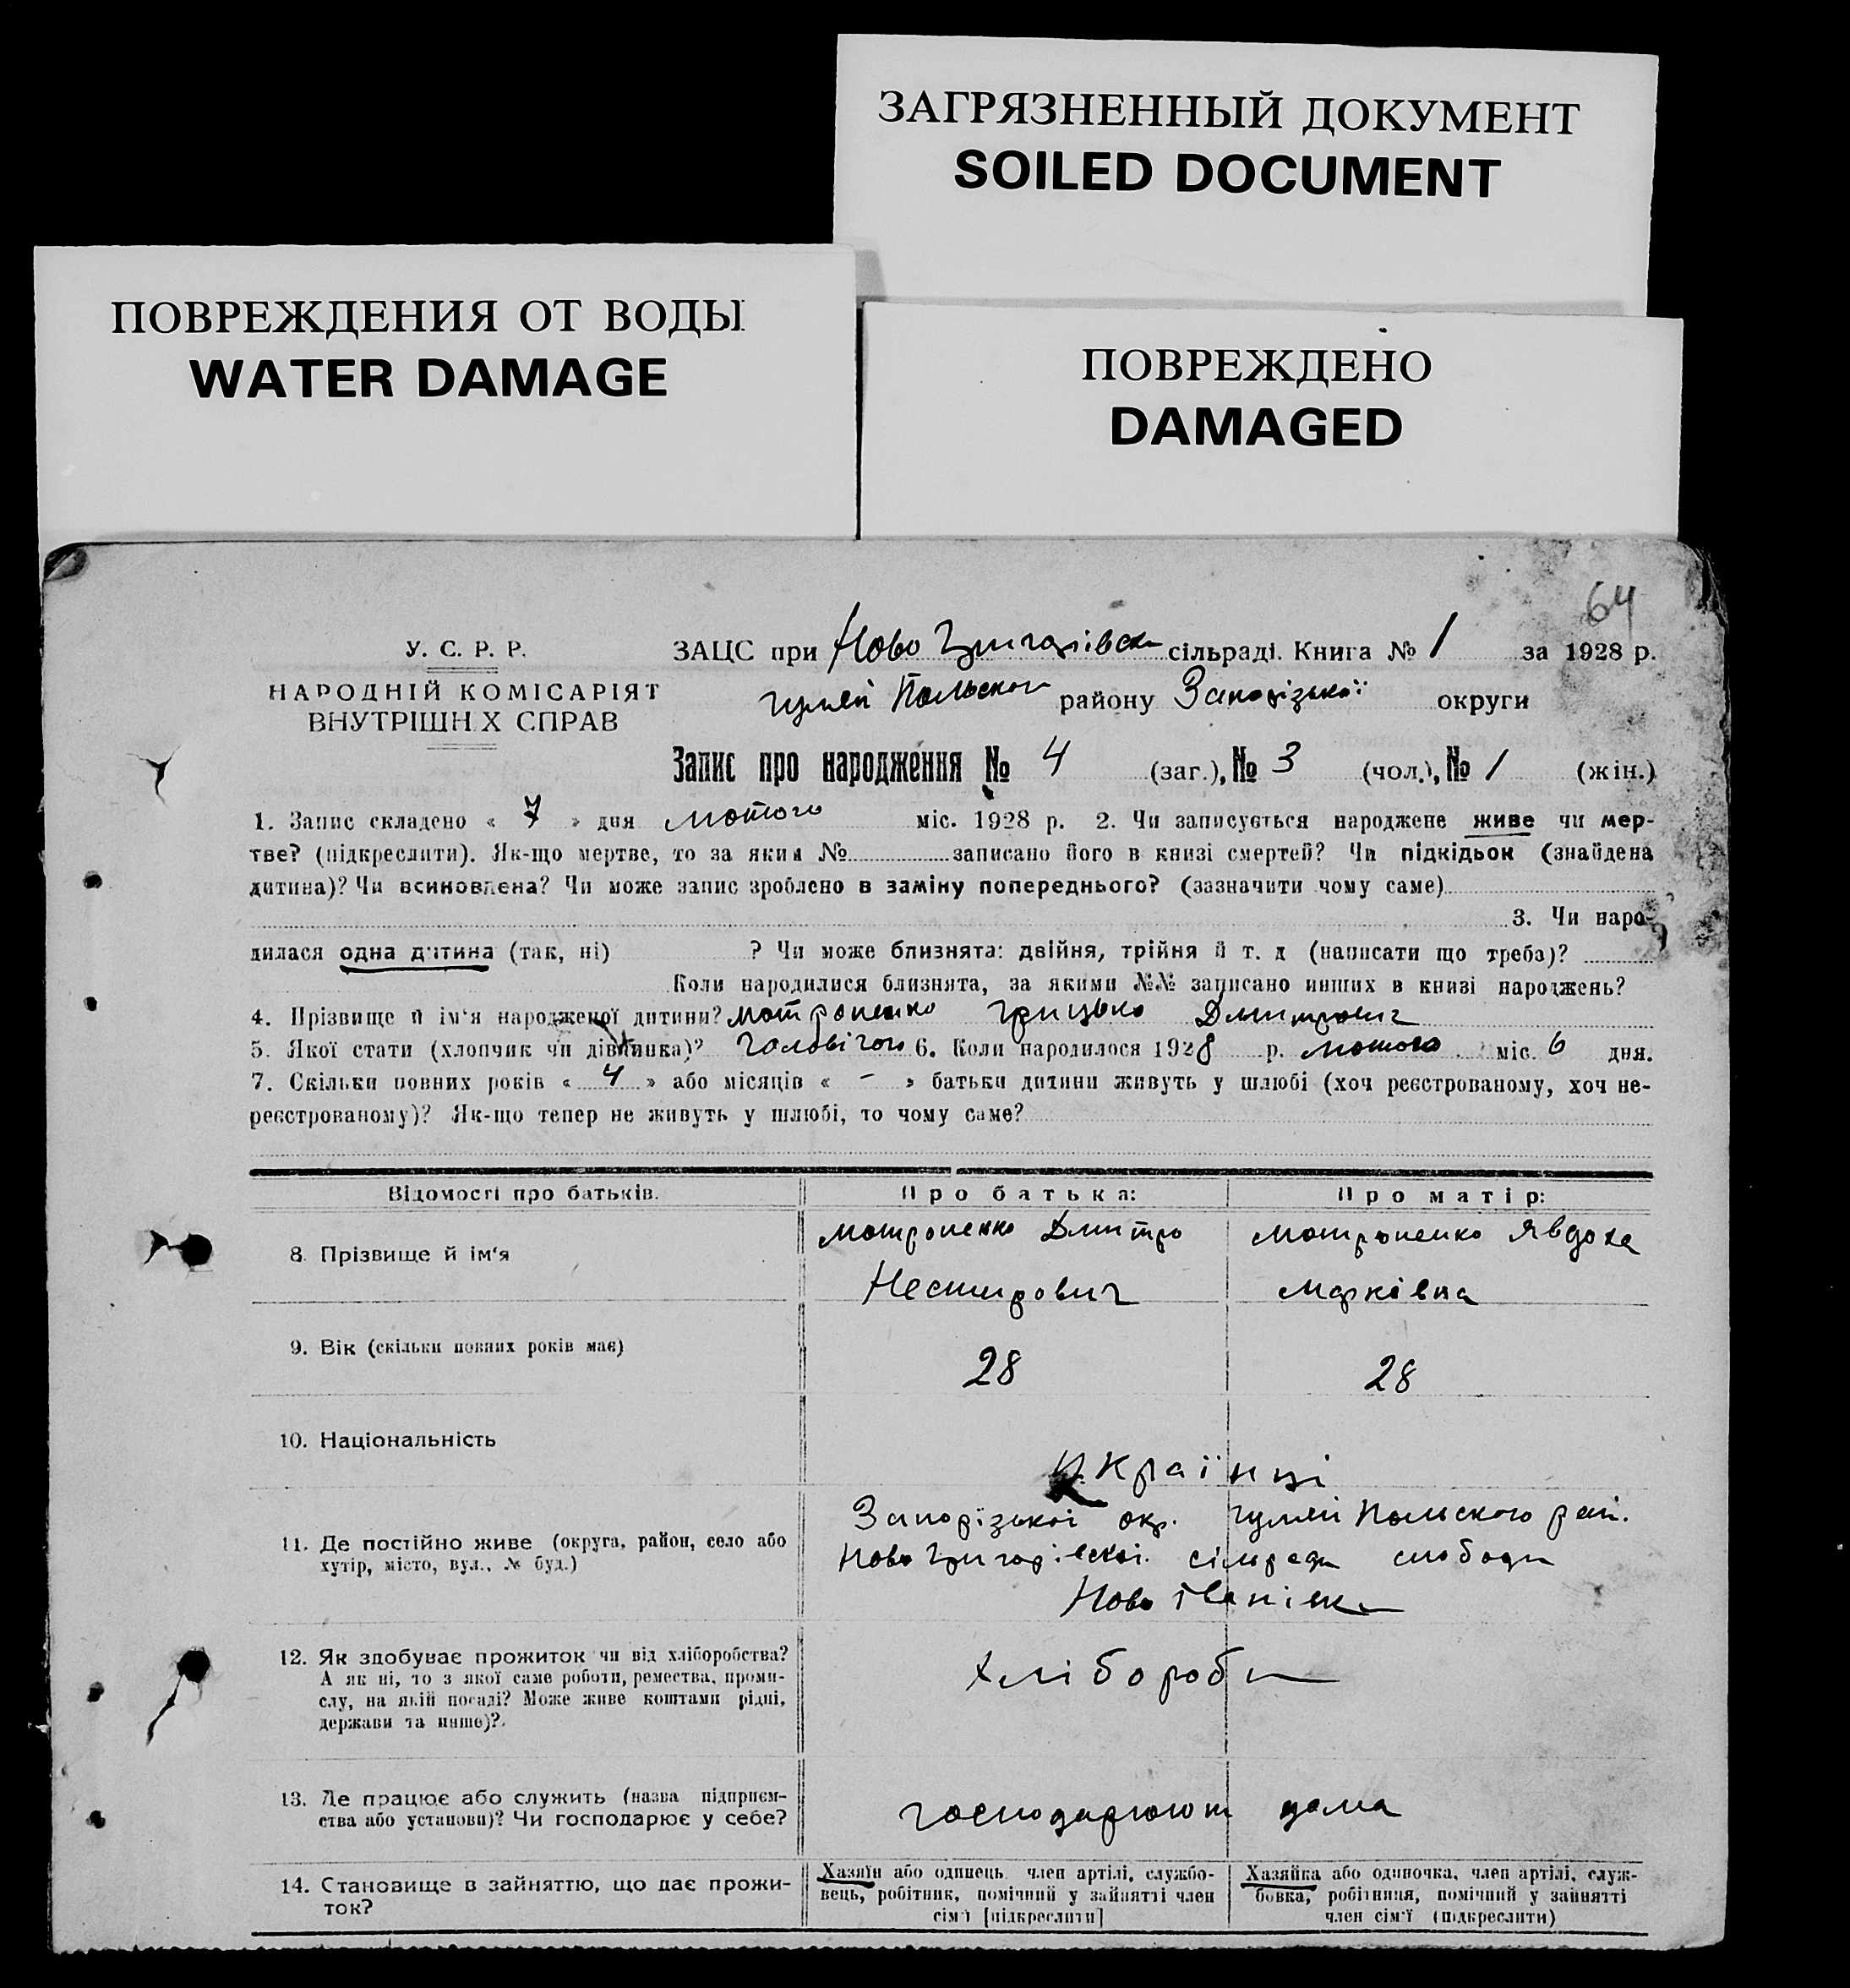 ЗАГРЯЗНЕННЫЙ ДОКУМЕНТ
SOILED DOCUMENT
ПОВРЕЖДЕНИЯ ОТ ВОДЫ
WATER DAMAGE
ПОВРЕЖДЕНО
DAMAGED
64
У. С. Р. Р.
НАРОДНІЙ КОМІСАРІЯТ
ВНУТРІШН Х СПРАВ
ЗАЦС при Ново Григорівськ сільраді. Книга № 1 за 1928 р.
Гуляй Польского району Запорізької округи
Запис про народження № 4 (заг.), № 3 (чол.), № 1 (жін.)
1. Запис складено « 7 » дня лютого міс. 1928 р. 2. Чи записується народжене живе чи мер-
тве? (підкреслити). Як-що мертве, то за яким № записано його в книзі смертей? Чи підкідьок (знайдена
дитина)? Чи всиновлена? Чи може запис зроблено в заміну попереднього? (зазначити чому саме)
3. Чи наро-
дилася одна дитина (так, ні) ? Чи може близнята: двійня, трійня й т. д (написати що треба)?
Коли народилися близнята, за якими №№ записано инших в книзі народжень?
4. Прізвище й ім'я народженої дитини? Мотроненко Грицько Дмитрович
5. Якої стати (хлопчик чи дівчинка)? Чоловічого 6. Коли народилося 1928 р. лютого міс. 6 дня.
7. Скільки повних років « 4 » або місяців « – » батьки дитини живуть у шлюбі (хоч реєстрованому, хоч не-
реєстрованому)? Як-що тепер не живуть у шлюбі, то чому саме?
Відомості про батьків. Про батька: Про матір:
8. Прізвище й ім'я Мотроненко Дмитро Мотроненко Явдоха
Нестирович Марківна
9. Вік (скільки повних років має) 28 28
10. Національність Українці
11. Де постійно живе (округа, район, село або
хутір, місто, вул., № буд.)
Запорізької окр. Гуляй Польского рай.
Ново Григорівської сільради слободи
Ново Іванівка
12. Як здобуває прожиток чи від хліборобства?
А як ні, то з якої саме роботи, ремества, проми-
слу, на якій посаді? Може живе коштами рідні,
держави та инше)?
Хлібороби
13. Де працює або служить (назва підприєм-
ства або установи)? Чи господарює у себе?
господарюют дома
14. Становище в зайняттю, що дає прожи-
ток?
Хазяїн або одинець член артілі, службо-
вець, робітник, помічний у зайнятті член
сім'ї [підкреслити]
Хазяйка або одиночка, член артілі, служ-
бовка, робітниця, помічний у зайнятті
член сім'ї (підкреслити)